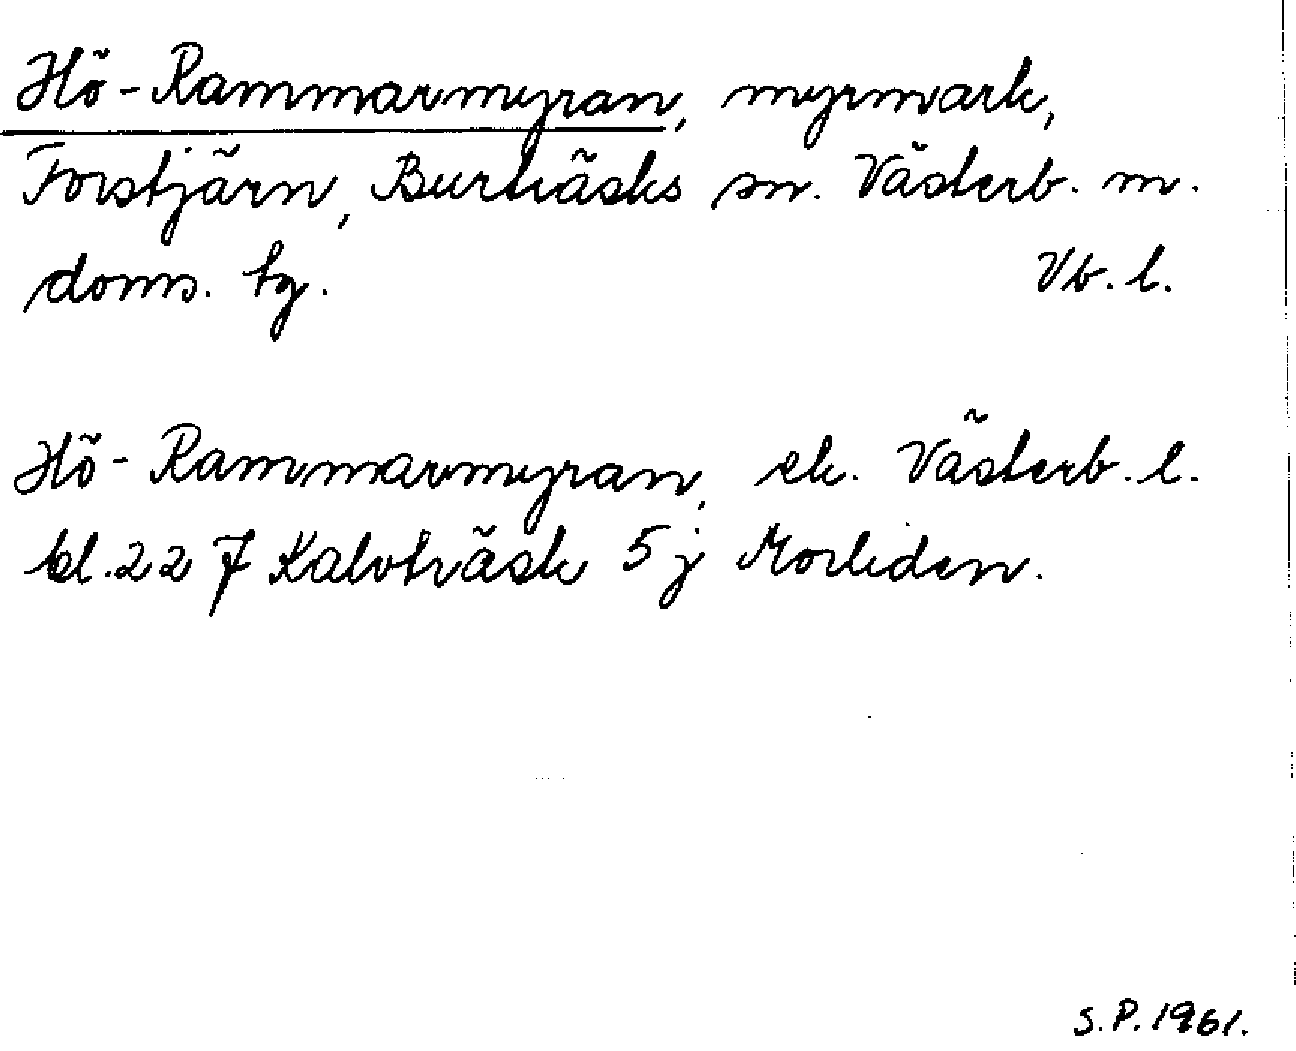 Hö-Rammarmyran, myrmark,
Forstjärn, Burträsks sn. Västerb. m.
doms. tg. Vb. l.
Hö-Rammarmyran, ek. Västerb. l.
bl. 22 7 Kalvträsk 5 j Morliden.
S.P. 1961.